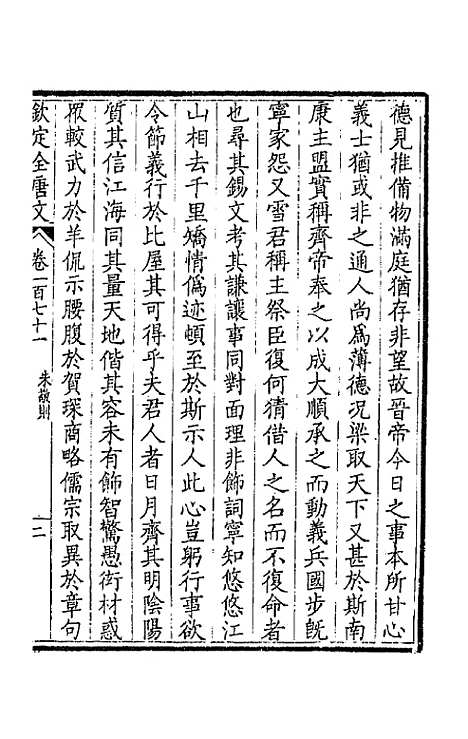 德見推備物滿庭猶存非望故晉帝今日之事本所甘心
義士猶或非之通人尚爲薄德况梁取天下又甚於斯南
康主盟實稱齊帝奉之以成大順承之而動義兵國步旣
寧家怨又雪君稱主祭臣復何猜借人之名而不復命者
也尋其錫文考其謙讓事同對面理非飾詞寧知悠悠江
山相去千里矯情僞迹頓至於斯示人此心豈躬行事欲
令節義行於比屋其可得乎夫君人者日月齊其明陰陽
質其信江海同其量天地偕其容未有飾智驚愚衒材惑
衆較武力於羊侃示腰腹於賀琛商略儒宗取異於章句
欽定全唐文 卷一百七十一 朱敬則 二